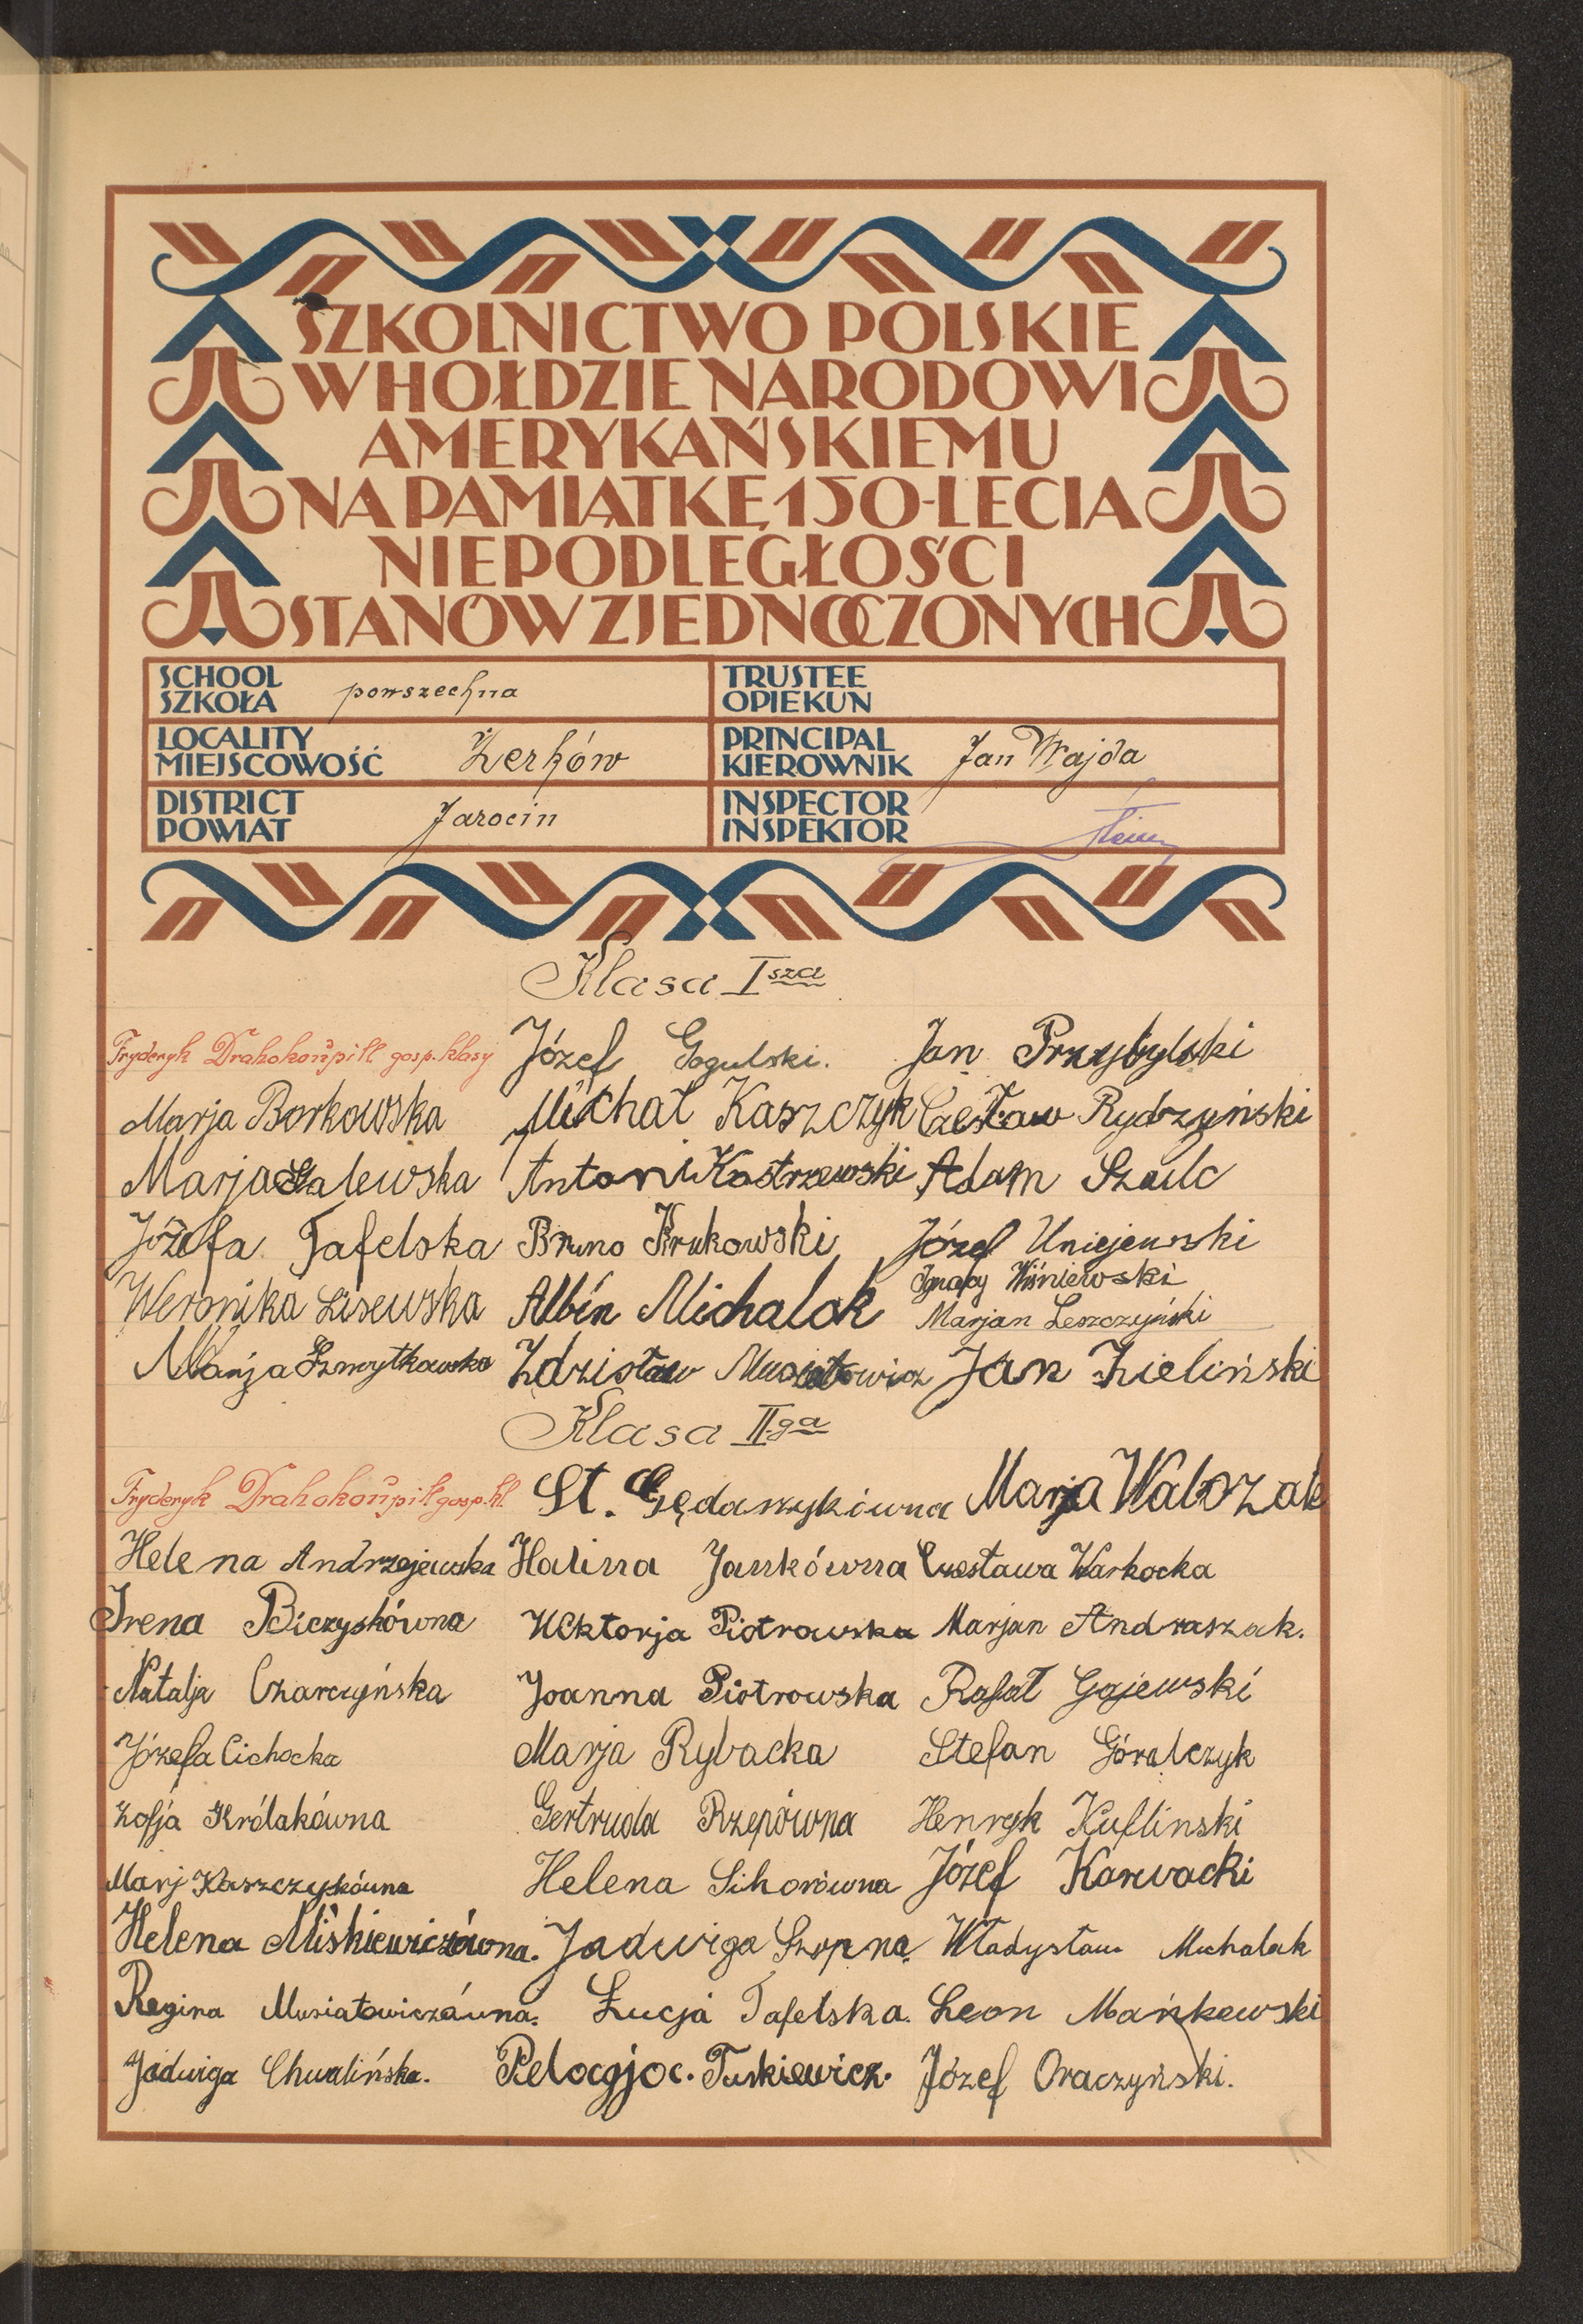 SZKOLNICTWO POLSKIE
W HOŁDZIE NARODOWI
AMERYKAŃSKIEMU
NA PAMIĄTKĘ 150-LECIA
NIEPODLEGŁOŚCI
STANÓW ZJEDNOCZONYCH
SCHOOL
SZKOŁA powszechna
TRUSTEE
OPIEKUN
LOCALITY
MIEJSCOWOŚĆ Żerków
PRINCIPAL
KIEROWNIK Jan Wajda
DISTRICT
POWIAT Jarocin
INSPECTOR
INSPEKTOR
Klasa I sza
Fryderyk Drahokoupill gosp. klasy Józef Gogulski. Jan Przybylski
Marja Borkowska Michał Kaszczyk Czesław Rydzyński
Marja Galewska Antoni Kostrzewski Adam Szulc
Józefa Tafelska Bruno Krukowski Józef Uniejewski
Ignacy Wiśniewski
Weronika Lisewska Albin Michalak Marjan Leszczyński
Marja Szmytkowska Zdzisław Musiatowicz Jan Zieliński
Klasa II-ga
Fryderyk Drahokoupill gosp. kl. St. Gędaszykówna Marja Walczak
Helena Andrzejewska Halina Jankówna Czesława Warkocka
Irena Biczyskówna Wiktorja Piotrowska Marjan Andraszak.
Natalja Czarczyńska Joanna Piotrowska Rafał Gajewski
Józefa Cichocka Marja Rybacka Stefan Góralczyk
Zofja Królakówna Gertruda Rzepówna Henryk Kuflinski
Marj Kaszczykówna Helena Sikorówna Józef Karwacki
Helena Miśkiewiczówna. Jadwiga Szopna. Władysław Michalak
Regina Musiatowiczówna. Łucja Tafelska. Leon Mańkewski
Jadwiga Chwalińska. Pelagja. Tuskiewicz. Józef Oraczyński.